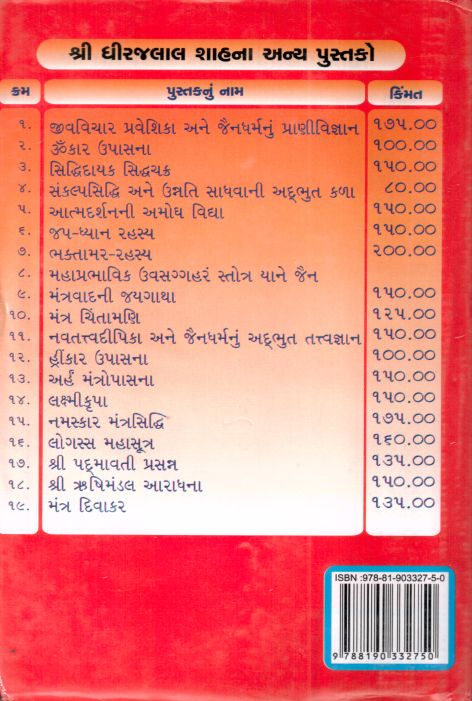 શ્રી ધીરજલાલ શાહના અન્ય પુસ્તકો
ક્રમ પુસ્તકનું નામ કિંમત
૧. જીવવિચાર પ્રવેશિકા અને જૈનધર્મનું પ્રાણીવિજ્ઞાન ૧૭૫.૦૦
૨. ૐકાર ઉપાસના ૧૦૦.૦૦
૩. સિદ્ધિદાયક સિદ્ધચક્ર ૧૫૦.૦૦
૪. સંકલ્પસિદ્ધિ અને ઉન્નતિ સાધવાની અદ્ભુત કળા ૮૦.૦૦
૫. આત્મદર્શનની અમોઘ વિદ્યા ૧૫૦.૦૦
૬. જપ-ધ્યાન રહસ્ય ૧૫૦.૦૦
૭. ભક્તામર-રહસ્ય ૨૦૦.૦૦
૮. મહાપ્રભાવિક ઉવસગ્ગહરં સ્તોત્ર યાને જૈન
૯. મંત્રવાદની જયગાથા ૧૫૦.૦૦
૧૦. મંત્ર ચિંતામણિ ૧૨૫.૦૦
૧૧. નવતત્ત્વદીપિકા અને જૈનધર્મનું અદ્ભુત તત્ત્વજ્ઞાન ૧૫૦.૦૦
૧૨. હ્રીંકાર ઉપાસના ૧૦૦.૦૦
૧૩. અર્હં મંત્રોપાસના ૧૫૦.૦૦
૧૪. લક્ષ્મીકૃપા ૧૫૦.૦૦
૧૫. નમસ્કાર મંત્રસિદ્ધિ ૧૭૫.૦૦
૧૬. લોગસ્સ મહાસૂત્ર ૧૬૦.૦૦
૧૭. શ્રી પદ્માવતી પ્રસન્ન ૧૩૫.૦૦
૧૮. શ્રી ઋષિમંડલ આરાધના ૧૫૦.૦૦
૧૯. મંત્ર દિવાકર ૧૩૫.૦૦
ISBN :978-81-903327-5-0
9 788190 332750